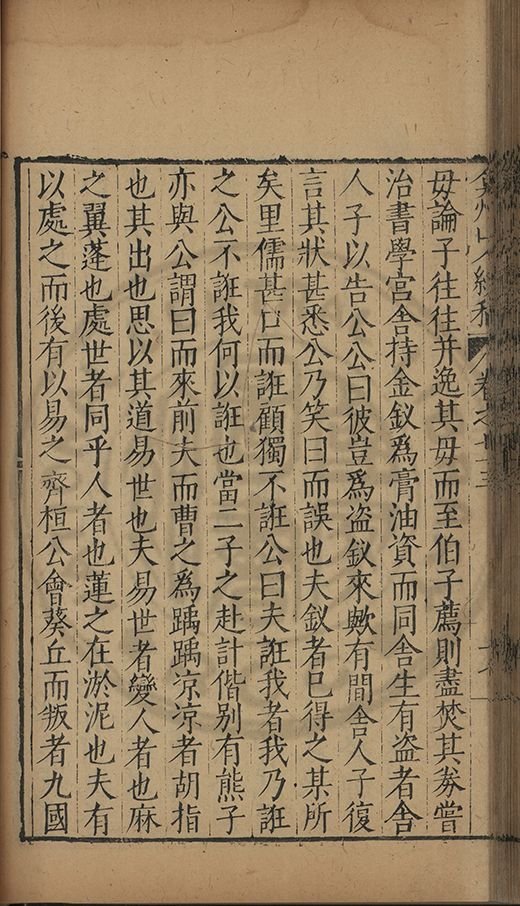 毋論子往往并逸其毋而至伯子薦則盡焚其券嘗
治書學宮舍持金釵爲膏油資而同舍生有盜者舍
人子以告公公曰彼豈爲盜釵來歟有間舍人子復
言其狀甚悉公乃笑曰而誤也夫釵者已得之某所
矣里儒甚口而誑顧獨不誑公曰夫誑我者我乃誑
之公不誑我何以誑也當二子之赴計偕别有熊子
亦與公謂曰而來前夫而曹之爲踽踽凉凉者胡指
也其出也思以其道易世也夫易世者變人者也麻
之翼蓬也處世者同乎人者也蓮之在淤泥也夫有
以處之而後有以易之齊桓公會葵丘而叛者九國